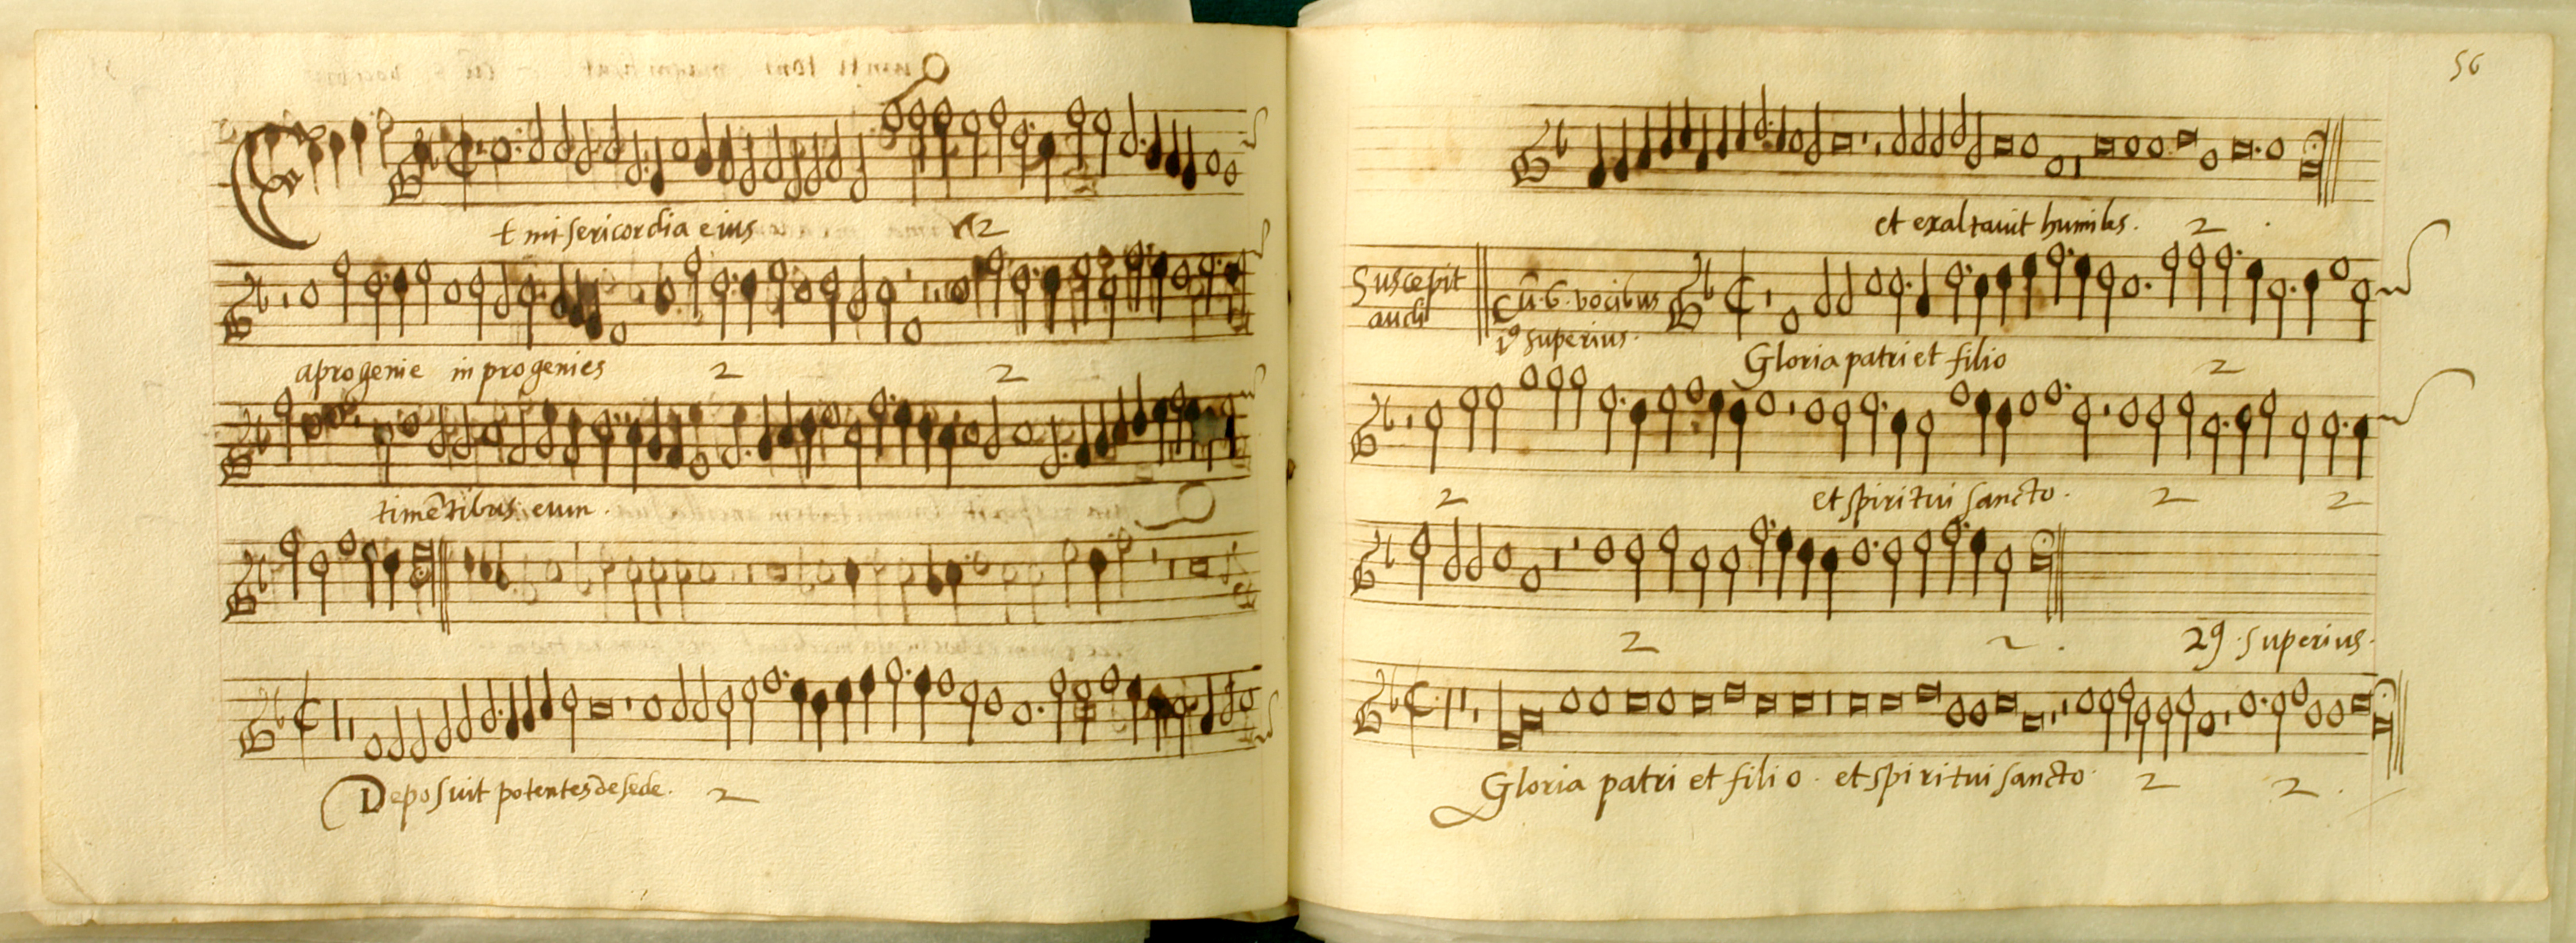 Et misericordia eius 2
aprogenie in progenies 2 2
timētibus eum.
Deposuit potentes de sede. 2
56
et exaltavit humiles. 2
Suscepit
Cū. 6. vocibus
1⁹ superius.
Gloria patri et filio 2
2 et spiritui sancto. 2 2
2 2 . 2⁹ . superius.
Gloria patri et filio. et spiritui sancto. 2 2 .